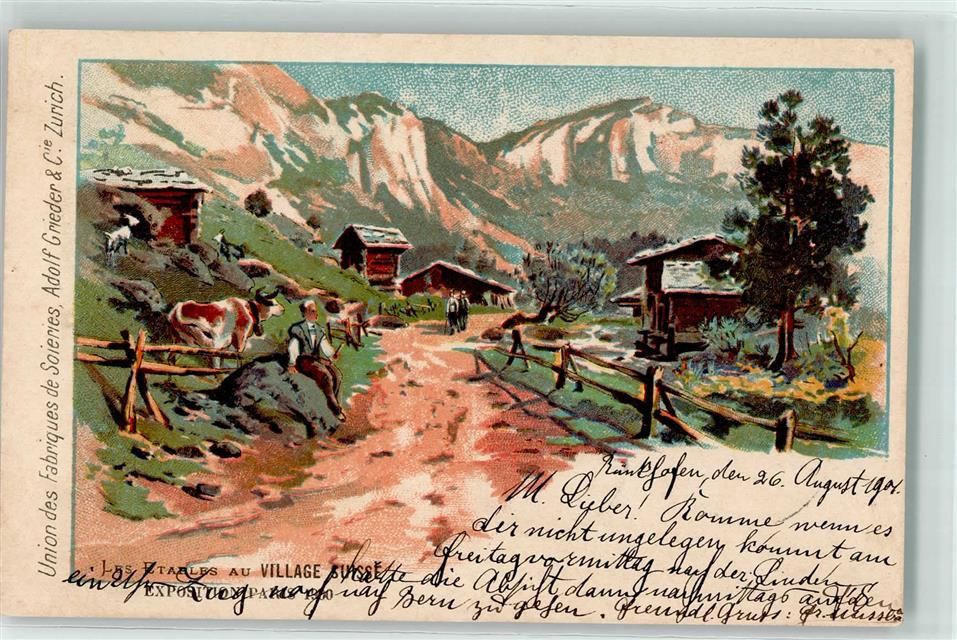 Union des Fabriques de Soieries, Adolf Grieder & Cie Zurich.
den 26. August 1901.
M. Lieber! Komme wenn es
dir nicht ungelegen kommt am
freitagvormittag nach der Linden
LES ETABLES AU VILLAGE SUISSE
hatte die Absicht, dann nachmittags auf den
EXPOSITION PARIS 1900
ein Uhr Zug noch nach Bern zu gehen. Freundl. Gruss: